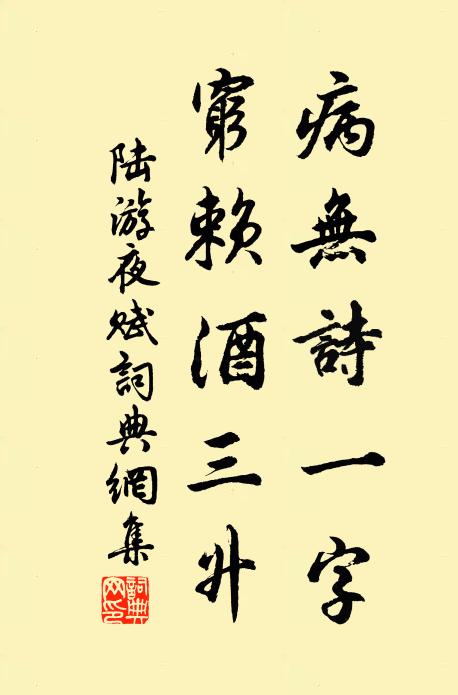 病無詩一字
窮賴酒三升
陸游夜賦詞典網集
詞典網印